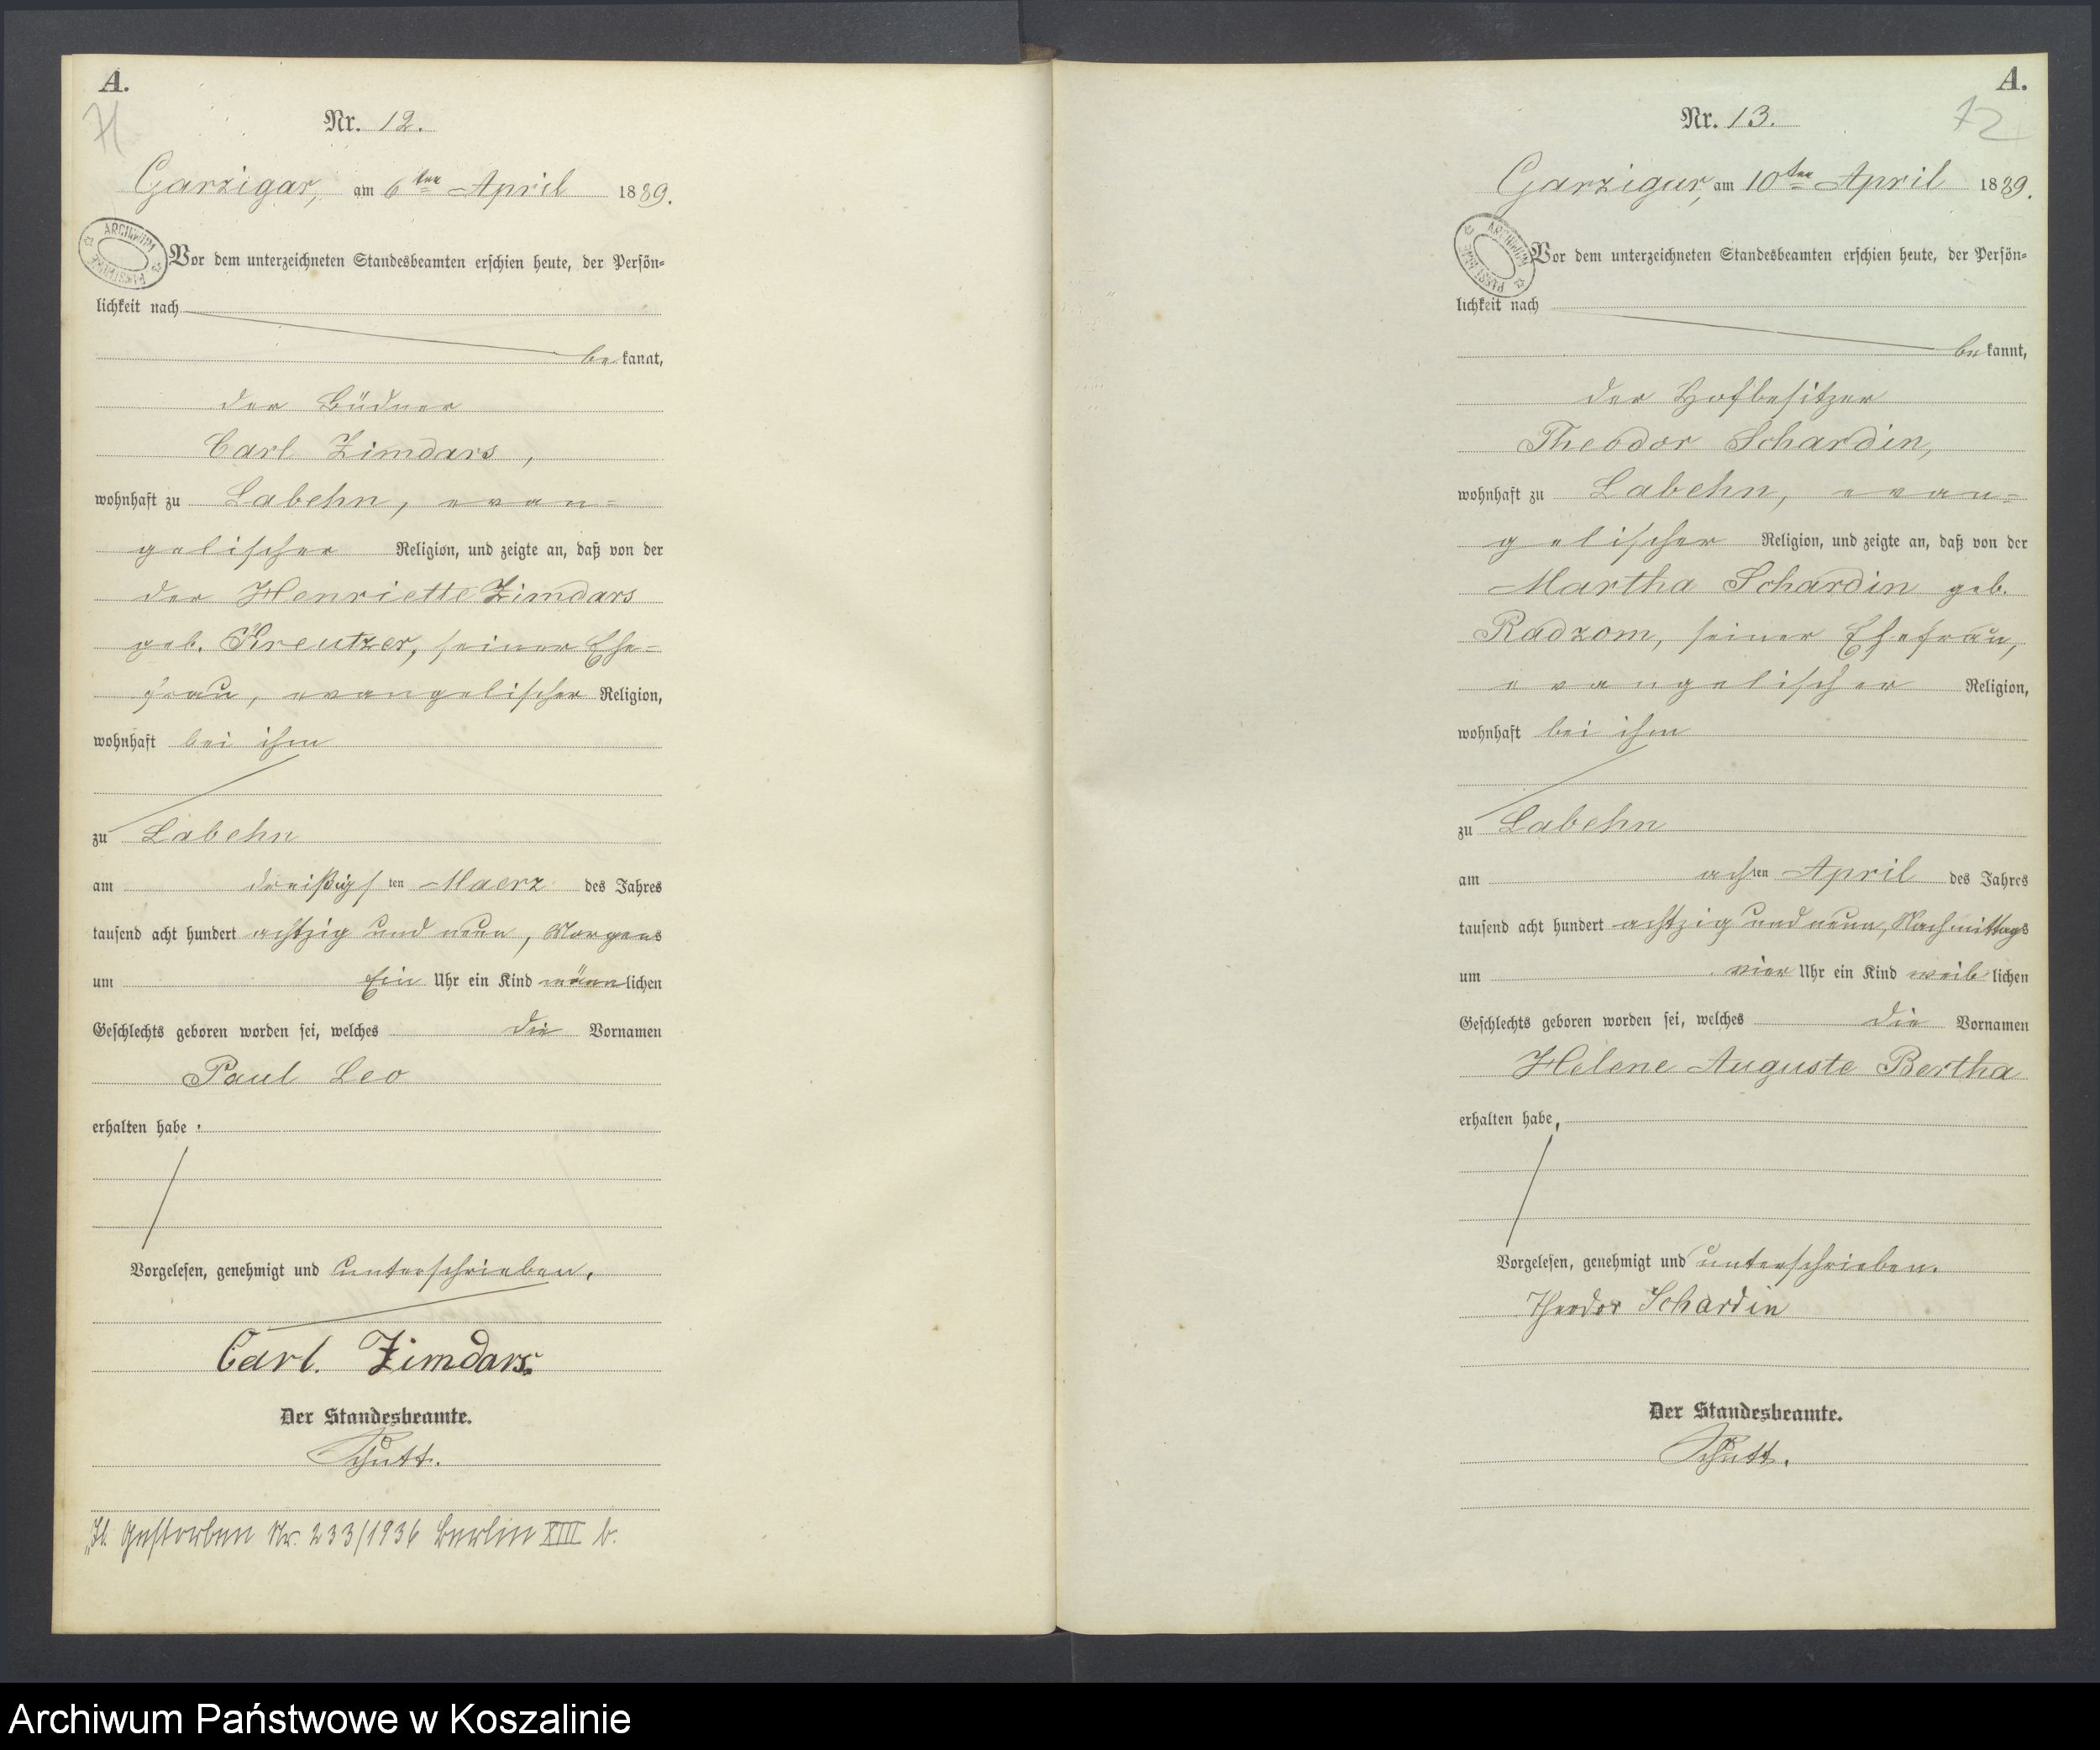 A.
71
Nr. 12.
Garzigar, am 6ten April 1889.
ARCHIWUM PAŃSTWOWE
Vor dem unterzeichneten Standesbeamten erschien heute, der Persön=
lichkeit nach
bekannt,
der Büdner
Carl Zimdars,
wohnhaft zu Labehn, evan=
gelischer Religion, und zeigte an, daß von der
der Henriette Zimdars
geb. Kreutzer, seiner Ehe=
frau, evangelischer Religion,
wohnhaft bei ihm
zu Labehn
am dreißigsten Maerz des Jahres
tausend acht hundert achtzig und neun, Morgens
um Ein Uhr ein Kind männlichen
Geschlechts geboren worden sei, welches die Vornamen
Paul Leo
erhalten habe.
Vorgelesen, genehmigt und unterschrieben.
Carl. Zimdars.
Der Standesbeamte.
Schutt.
Gestorben Nr. 233/1936 Berlin XIII b.
A.
72
Nr. 13.
Garzigar, am 10ten April 1889.
ARCHIWUM PAŃSTWOWE
Vor dem unterzeichneten Standesbeamten erschien heute, der Persön=
lichkeit nach
bekannt,
der Hofbesitzer
Theodor Schardin,
wohnhaft zu Labehn, evan=
gelischer Religion, und zeigte an, daß von der
Martha Schardin geb.
Radzom, seiner Ehefrau,
evangelischer Religion,
wohnhaft bei ihm
zu Labehn
am achten April des Jahres
tausend acht hundert achtzig und neun, Nachmittags
um vier Uhr ein Kind weiblichen
Geschlechts geboren worden sei, welches die Vornamen
Helene Auguste Bertha
erhalten habe,
Vorgelesen, genehmigt und unterschrieben.
Theodor Schardin
Der Standesbeamte.
Schutt.
Archiwum Państwowe w Koszalinie